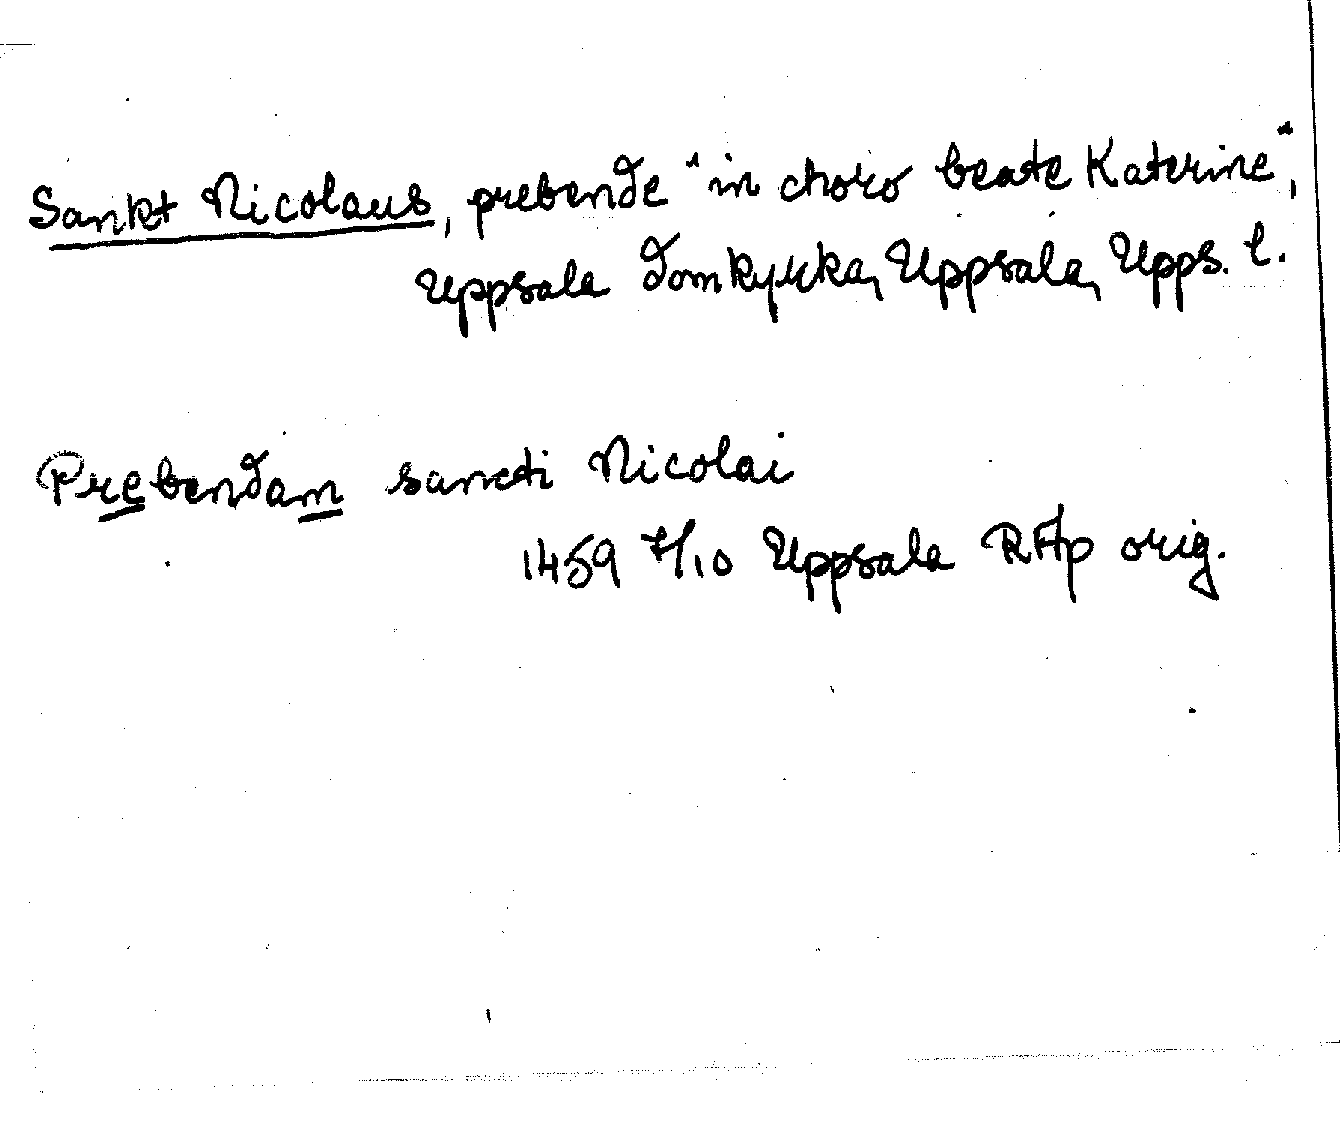 Sankt Nicolaus, prebende "in choro beate Katerine",
Uppsala domkyrka, Uppsala, Upps. l.
Prebendam sancti Nicolai
1459 7/10 Uppsala RAp orig.